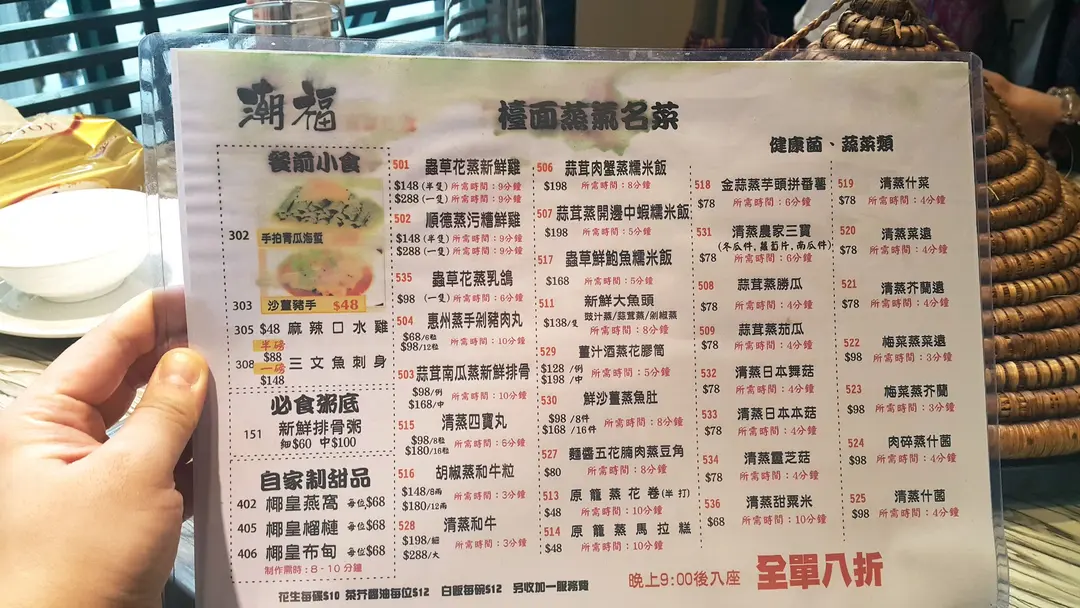 潮福
檯面蒸氣名菜
餐前小食
302 手拍青瓜海蜇
303 沙薑豬手 $48
305 $48 麻辣口水雞
半磅 $88
308 三文魚刺身
一磅 $148
必食粥底
151 新鮮排骨粥
細$60 中$100
自家制甜品
402 椰皇燕窩 每位$68
405 椰皇榴槤 每位$68
406 椰皇布甸 每位$68
制作需時：8-10分鐘
501 蟲草花蒸新鮮雞
$148 (半隻) 所需時間：9分鐘
$288 (一隻) 所需時間：9分鐘
502 順德蒸污糟鮮雞
$148 (半隻) 所需時間：9分鐘
$288 (一隻) 所需時間：9分鐘
535 蟲草花蒸乳鴿
$98 (一隻) 所需時間：6分鐘
504 惠州蒸手剁豬肉丸
$68/6粒
$98/12粒 所需時間：10分鐘
503 蒜茸南瓜蒸新鮮排骨
$98/例 所需時間：10分鐘
$168/中
515 清蒸四寶丸
$98/8粒 所需時間：6分鐘
$180/16粒
516 胡椒蒸和牛粒
$148/8兩 所需時間：3分鐘
$180/12兩
528 清蒸和牛
$198/細 所需時間：3分鐘
$288/大
506 蒜茸肉蟹蒸糯米飯
$198 所需時間：8分鐘
507 蒜茸蒸開邊中蝦糯米飯
$198 所需時間：5分鐘
517 蟲草鮮鮑魚糯米飯
$168 所需時間：5分鐘
511 新鮮大魚頭
$138/隻 豉汁蒸/蒜茸蒸/剁椒蒸
所需時間：8分鐘
529 薑汁酒蒸花膠筒
$128 /例 所需時間：5分鐘
$198 /中
530 鮮沙薑蒸魚肚
$98 /8件 所需時間：8分鐘
$168 /16件
527 麵醬五花腩肉蒸豆角
$80 所需時間：8分鐘
513 原籠蒸花卷(半打)
$48 所需時間：10分鐘
514 原籠蒸馬拉糕
$48 所需時間：10分鐘
健康菌、蔬菜類
518 金蒜蒸芋頭拼番薯
$78 所需時間：6分鐘
531 清蒸農家三寶
(冬瓜件,蘿蔔件,南瓜件)
$78 所需時間：6分鐘
508 蒜茸蒸勝瓜
$78 所需時間：4分鐘
509 蒜茸蒸茄瓜
$78 所需時間：4分鐘
532 清蒸日本舞菇
$78 所需時間：4分鐘
533 清蒸日本本菇
$78 所需時間：4分鐘
534 清蒸靈芝菇
$78 所需時間：4分鐘
536 清蒸甜粟米
$68 所需時間：10分鐘
519 清蒸什菜
$78 所需時間：4分鐘
520 清蒸菜遠
$78 所需時間：4分鐘
521 清蒸芥蘭遠
$78 所需時間：4分鐘
522 梅菜蒸菜遠
$98 所需時間：3分鐘
523 梅菜蒸芥蘭
$98 所需時間：3分鐘
524 肉碎蒸什菌
$98 所需時間：4分鐘
525 清蒸什菌
$98 所需時間：4分鐘
花生每碟$10 茶芥醬油每位$12 白飯每碗$12 另收加一服務費
晚上9:00後入座 全單八折